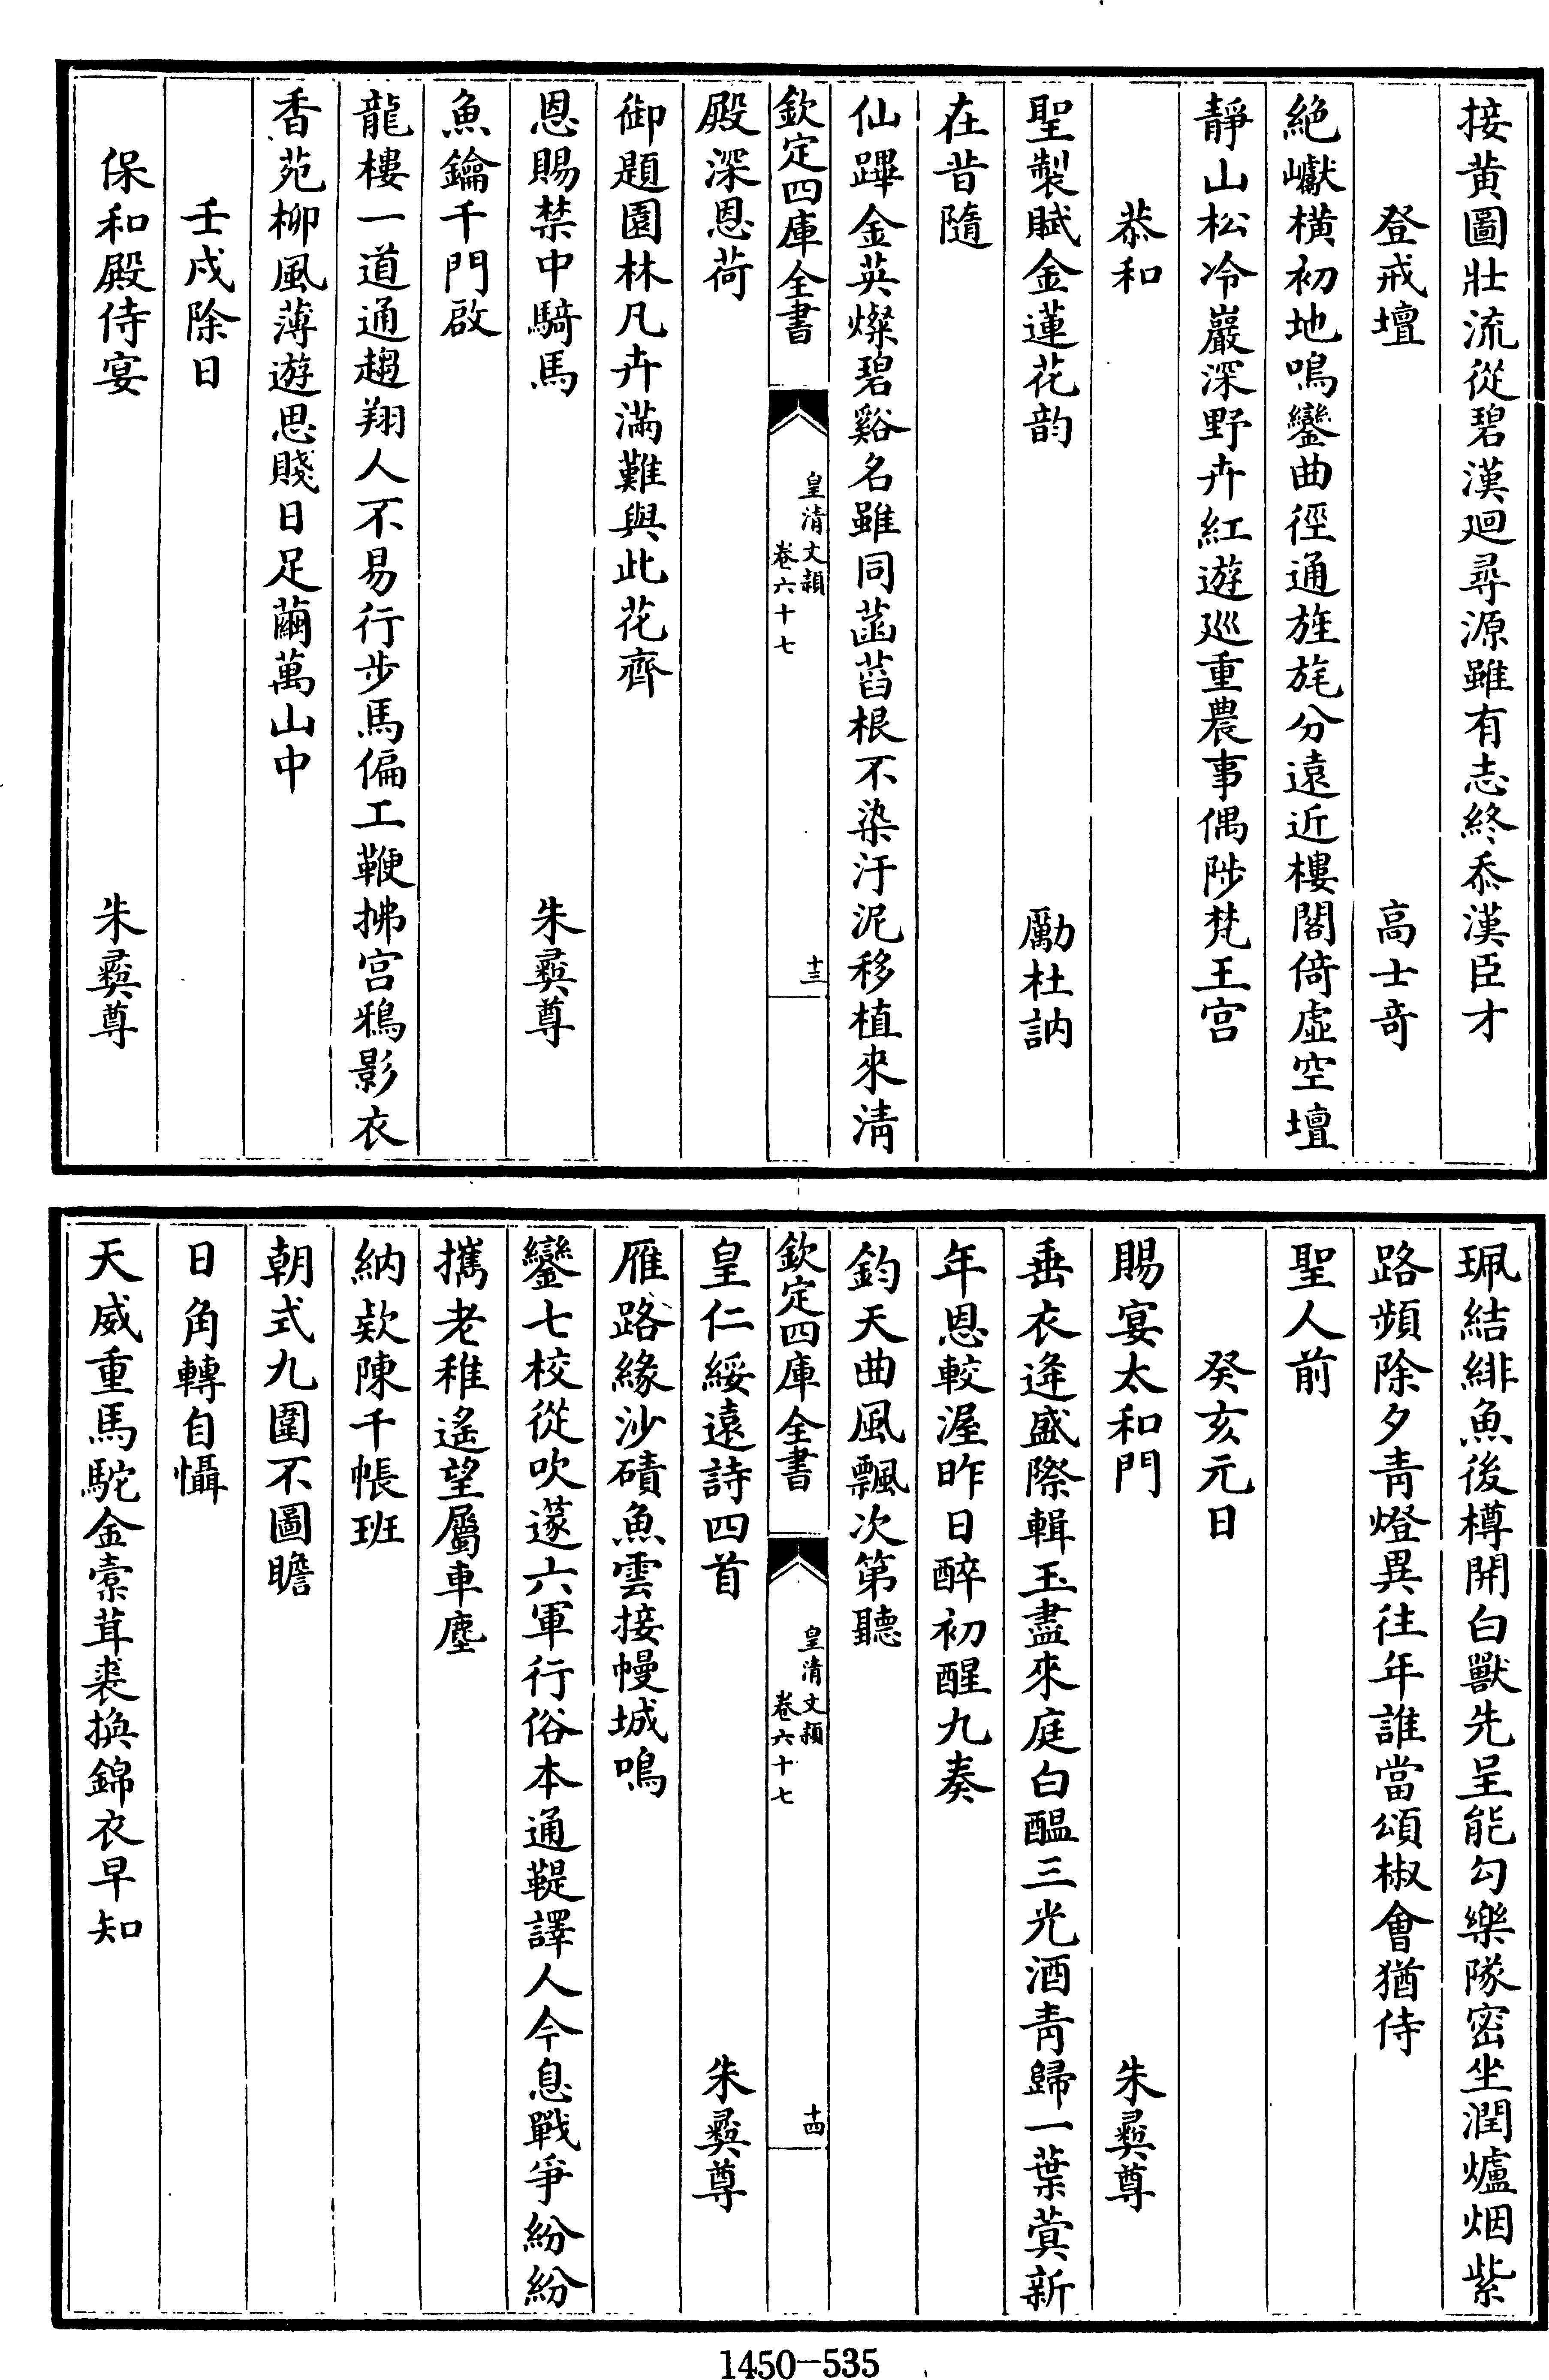 接黄圖壯流從碧漢廻尋源雖有志終忝漢臣才
登戒壇 高士奇
絶巘横初地鳴鑾曲徑通旌旄分遠近樓閣倚虚空壇
靜山松冷巖深野卉紅遊廵重農事偶陟梵王宫
恭和
聖製賦金蓮花韵 勵杜訥
在昔隨
仙蹕金英燦碧谿名雖同菡萏根不染汙泥移植來清
欽定四庫全書
皇清文穎
卷六十七
十三
殿深恩荷
御題園林凡卉滿難與此花齊
恩賜禁中騎馬 朱彝尊
魚鑰千門啟
龍樓一道通趨翔人不易行步馬偏工鞭拂宫鴉影衣
香苑柳風薄遊思賤日足繭萬山中
壬戍除日
保和殿侍宴 朱彝尊
珮結緋魚後樽開白獸先呈能勾樂隊密坐潤爐烟紫
路頻除夕青燈異往年誰當頌椒會猶侍
聖人前
癸亥元日
賜宴太和門 朱彝尊
垂衣逄盛際輯玉盡來庭白醖三光酒青歸一葉蓂新
年恩較渥昨日醉初醒九奏
鈞天曲風飄次第聽
欽定四庫全書
皇清文穎
卷六十七
十四
皇仁綏遠詩四首 朱彝尊
雁路緣沙磧魚雲接幔城鳴
鑾七校從吹篴六軍行俗本通鞮譯人今息戰爭紛紛
攜老稚遙望屬車塵
納欵陳千帳班
朝式九圍不圖瞻
日角轉自懾
天威重馬駝金橐茸裘換錦衣早知
1450-535